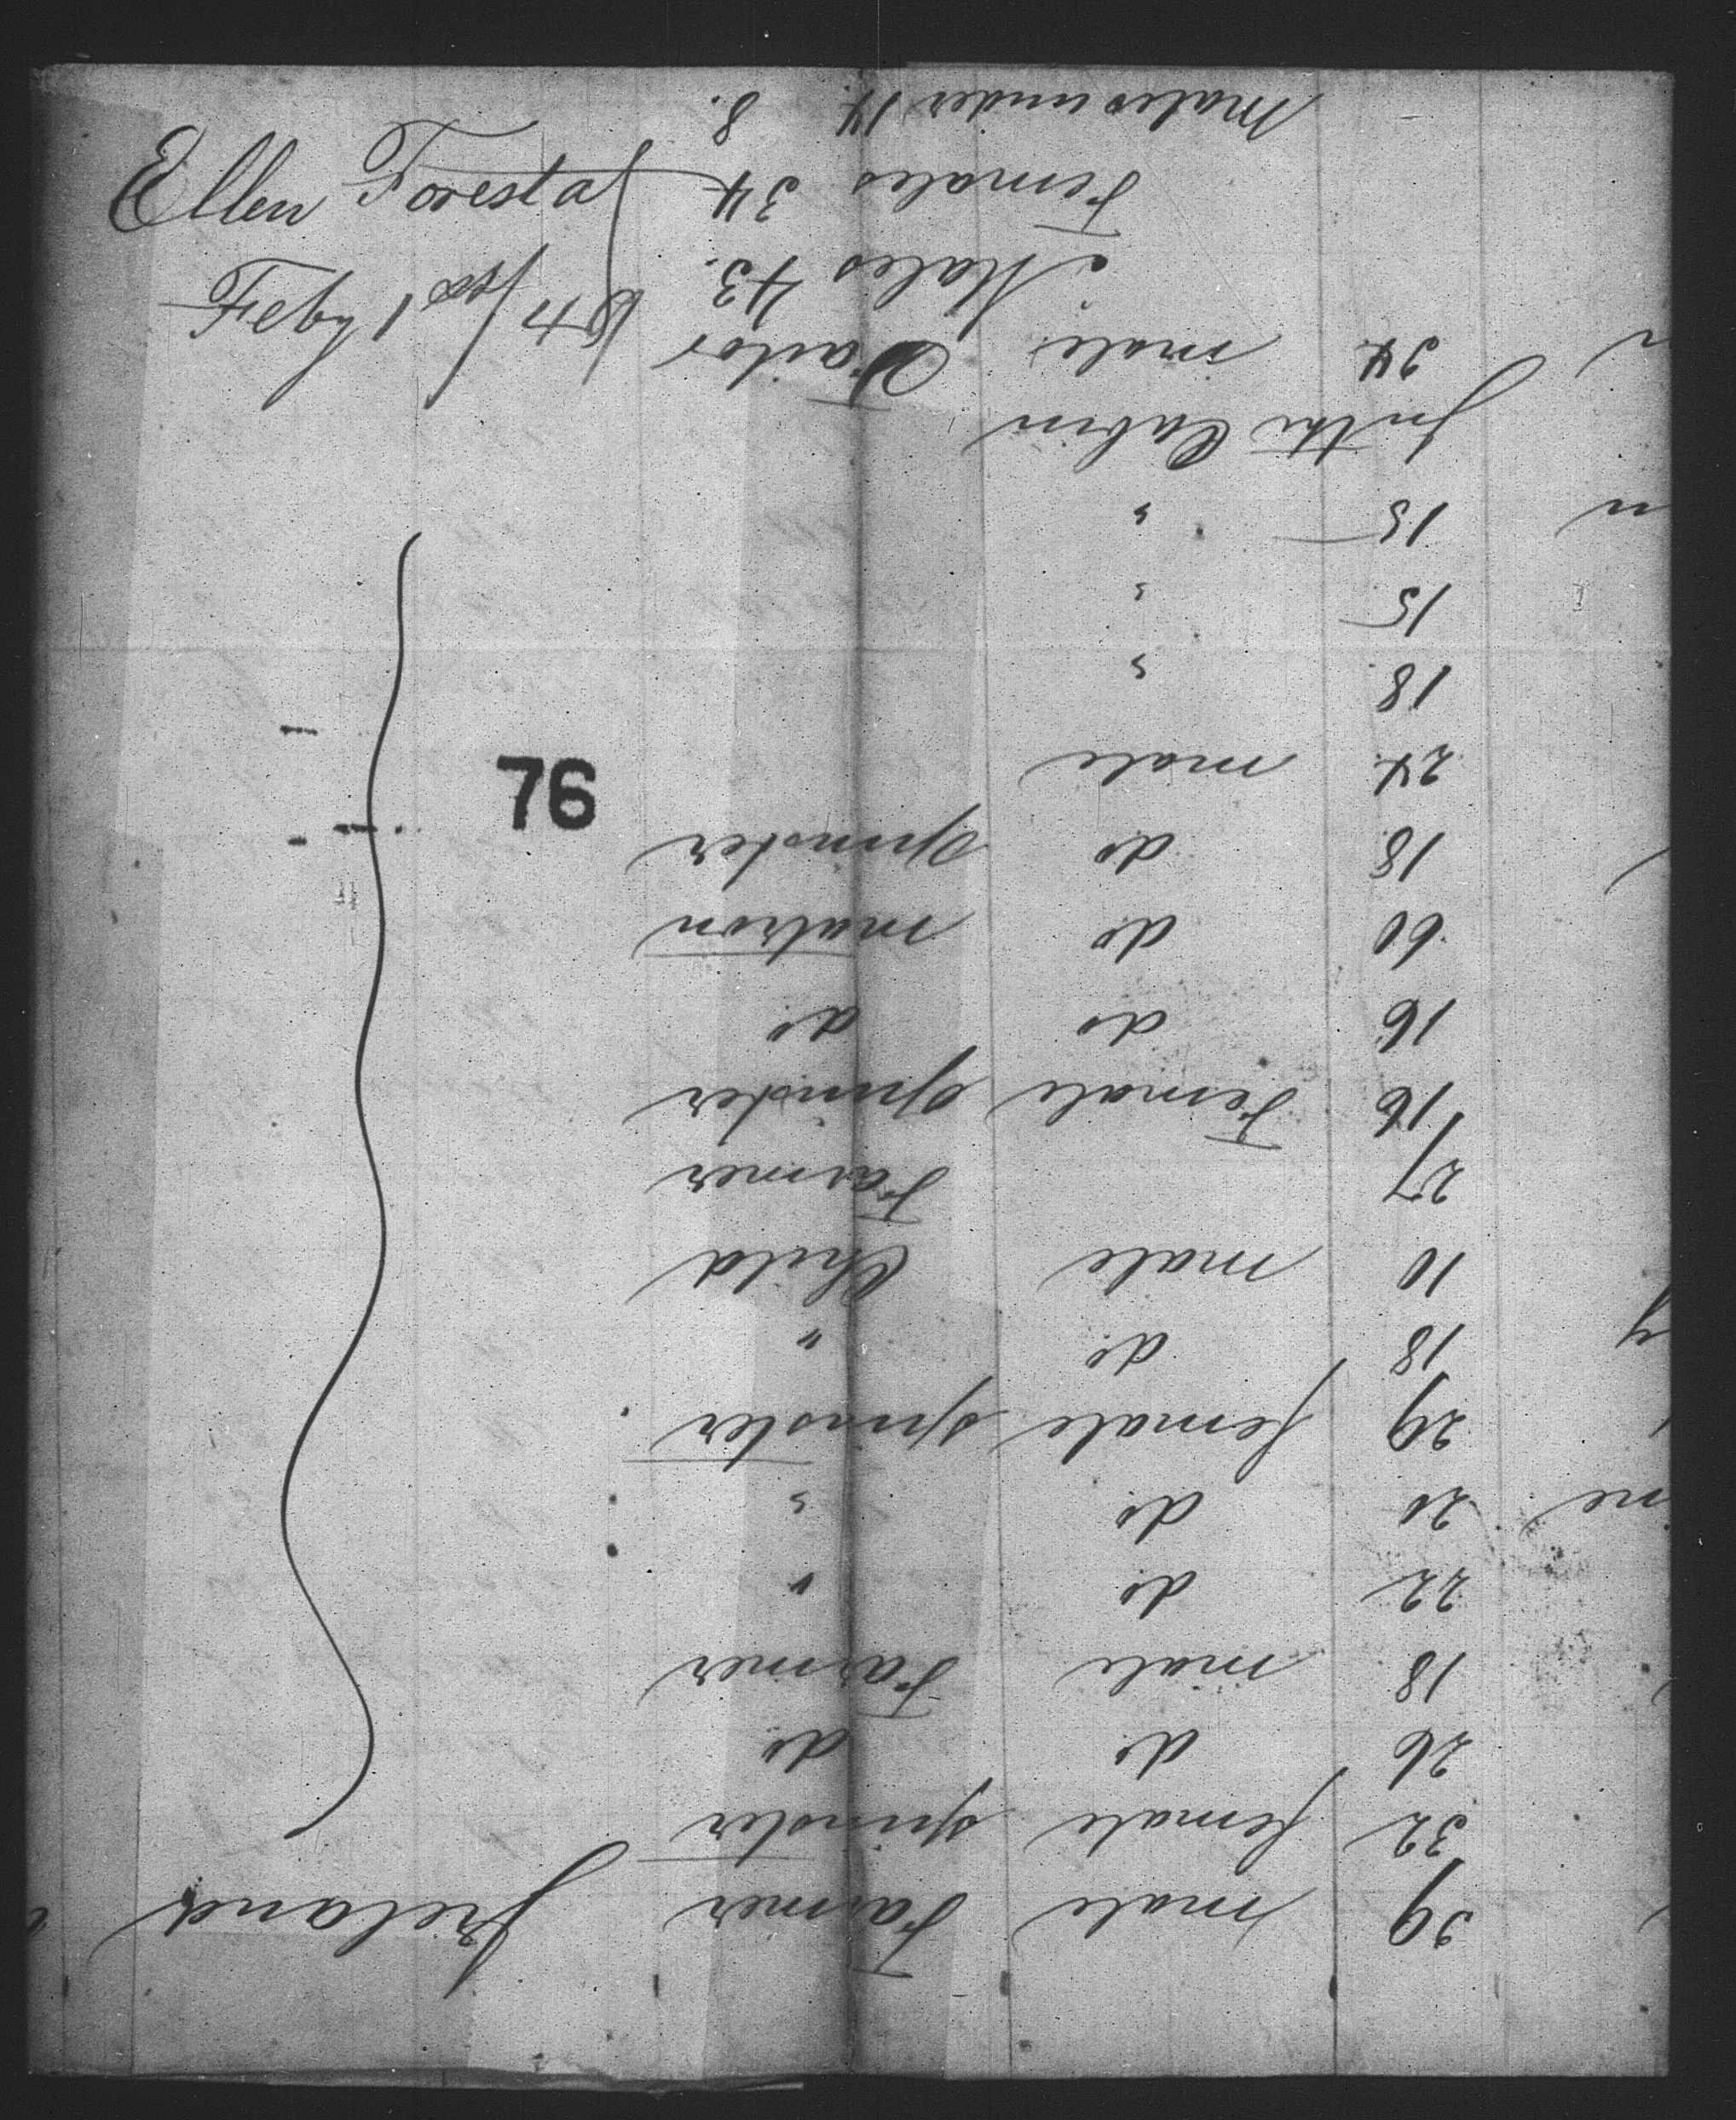 39 male Farmer Ireland
32 female spinster
26 do do
18 male Farmer
22 do "
20 do "
29 female spinster
18 do "
10 male Child
27 Farmer
16 Female Spinster
16 do do
60 do matron
18 do Spinster
24 male
18 "
15 "
15 "
In the Cabin
34 male Tailor
Males 43.
Females 34
Males under 14. 8.
Ellen Forestal
Feby 1
76